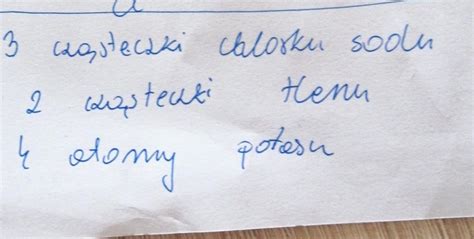 3 cząsteczki chlorku sodu
2 cząsteczki tlenu
4 atomy potasu